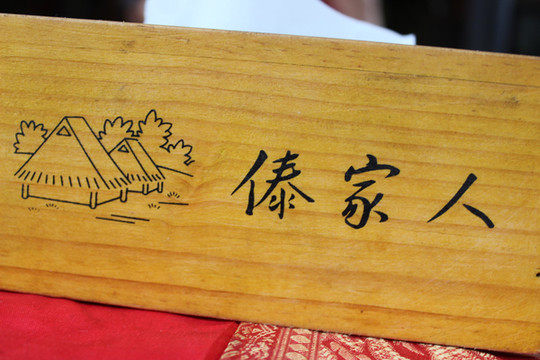 傣家人